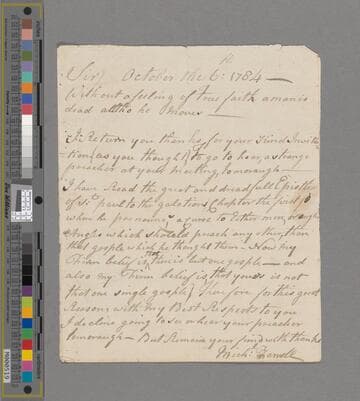 th
Sir/ October the 6: 1784 —
Without a feeling of true faith a man is
dead altho he Moves —
I Return you thanks for your Kind Invita
tion (as you thought) to go to hear a strange
preacher at your Meeting tomorough —
I have Read the great and dreadfull Epistle
of St. paul to the galations Chapter the first
when he pronouncs a curse to Either men, or
Angls which should preach any other than
that gosple which he thought them — Now my
Firm belief is, their is but one gosple — and
also my Firm belief is that yours is not
that one single gosple) Therefore for this great
Reason with my Best Respects to you
I decline going to see or hear your preacher
tomorough — But Remain your friend with thanks